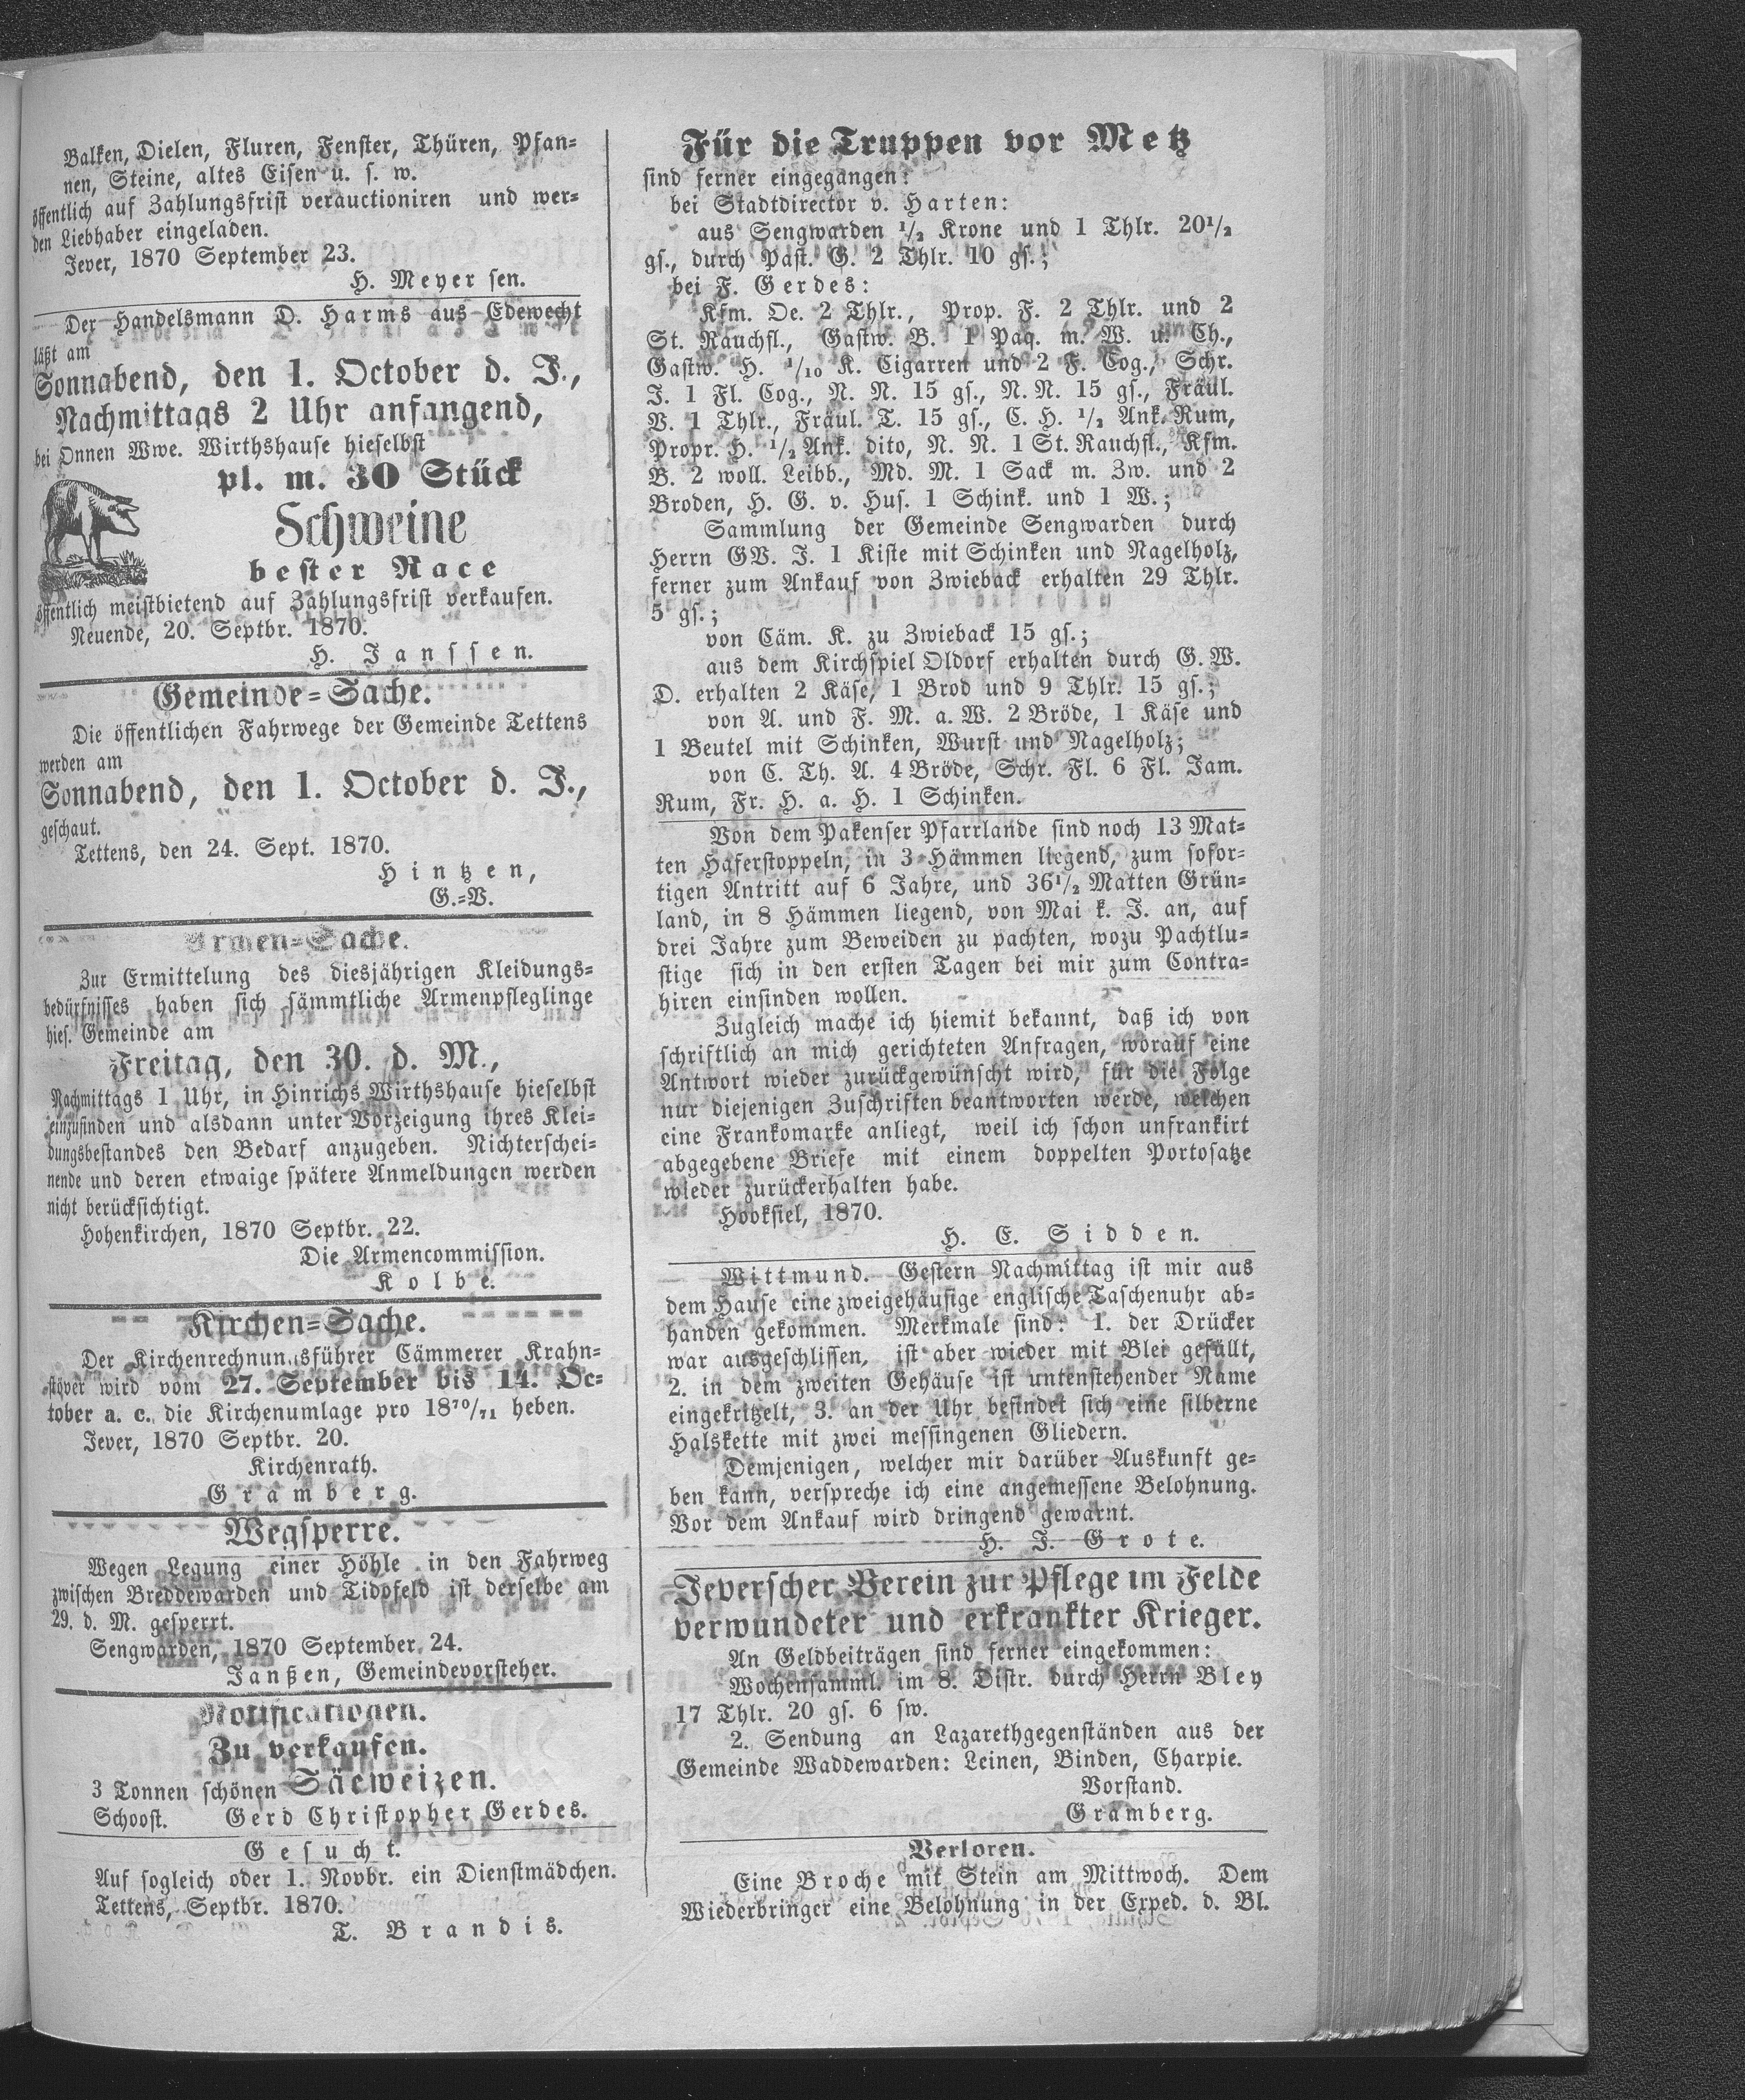 Balken, Dielen, Fluren, Fenster, Thüren, Pfan-
nen, Steine, altes Eisen u. s. w.
öffentlich auf Zahlungsfrist verauctioniren und wer-
den Liebhaber eingeladen.
Jever, 1870 September 23.
H. Meyer sen.
Der Handelsmann D. Harms aus Edewecht
läßt am
Sonnabend, den 1. October d. J.,
Nachmittags 2 Uhr anfangend,
bei Onnen Wwe. Wirthshause hieselbst
pl. m. 30 Stück
Schweine
bester Race
öffentlich meistbietend auf Zahlungsfrist verkaufen.
Neuende, 20. Septbr. 1870.
H. Janssen.
Gemeinde-Sache.
Die öffentlichen Fahrwege der Gemeinde Tettens
werden am
Sonnabend, den 1. October d. J.,
geschaut.
Tettens, den 24. Sept. 1870.
Hintzen,
G.-V.
Armen-Sache.
Zur Ermittelung des diesjährigen Kleidungs-
bedürfnisses haben sich sämmtliche Armenpfleglinge
hies. Gemeinde am
Freitag, den 30. d. M.,
Nachmittags 1 Uhr, in Hinrichs Wirthshause hieselbst
einzufinden und alsdann unter Vorzeigung ihres Klei-
dungsbestandes den Bedarf anzugeben. Nichterschei-
nende und deren etwaige spätere Anmeldungen werden
nicht berücksichtigt.
Hohenkirchen, 1870 Septbr. 22.
Die Armencommission.
Kolbe.
Kirchen-Sache.
Der Kirchenrechnungsführer Cämmerer Krahn-
stöver wird vom 27. September bis 14. Oc-
tober a. c. die Kirchenumlage pro 18⁷⁰/₇₁ heben.
Jever, 1870 Septbr. 20.
Kirchenrath.
Gramberg.
Wegsperre.
Wegen Legung einer Höhle in den Fahrweg
zwischen Breddewarden und Tidofeld ist derselbe am
29. d. M. gesperrt.
Sengwarden, 1870 September 24.
Janßen, Gemeindevorsteher.
Notificationen.
Zu verkaufen.
3 Tonnen schönen Säeweizen.
Schoost. Gerd Christopher Gerdes.
Gesucht.
Auf sogleich oder 1. Novbr. ein Dienstmädchen.
Tettens, Septbr. 1870.
T. Brandis.
Für die Truppen vor Metz
sind ferner eingegangen:
bei Stadtdirector v. Harten:
aus Sengwarden ½ Krone und 1 Thlr. 20½
gs., durch Past. G. 2 Thlr. 10 gs.;
bei F. Gerdes:
Kfm. Oe. 2 Thlr., Prop. F. 2 Thlr. und 2
St. Rauchfl., Gastw. B. 1 Paq. m. W. u. Ch.,
Gastw. H. ¹/₁₀ K. Cigarren und 2 F. Cog., Schr.
J. 1 Fl. Cog., N. N. 15 gs., N. N. 15 gs., Fräul.
V. 1 Thlr., Fräul. T. 15 gs., C. H. ½ Ank. Rum,
Propr. H. ½ Ank. dito, N. N. 1 St. Rauchfl., Kfm.
B. 2 woll. Leibb., Md. M. 1 Sack m. Zw. und 2
Broden, H. G. v. Hus. 1 Schink. und 1 W.;
Sammlung der Gemeinde Sengwarden durch
Herrn GV. J. 1 Kiste mit Schinken und Nagelholz,
ferner zum Ankauf von Zwieback erhalten 29 Thlr.
5 gs.;
von Cäm. K. zu Zwieback 15 gs.;
aus dem Kirchspiel Oldorf erhalten durch G. W.
D. erhalten 2 Käse, 1 Brod und 9 Thlr. 15 gs.;
von A. und F. M. a. W. 2 Bröde, 1 Käse und
1 Beutel mit Schinken, Wurst und Nagelholz;
von C. Th. A. 4 Bröde, Schr. Fl. 6 Fl. Jam.
Rum, Fr. H. a. H. 1 Schinken.
Von dem Pakenser Pfarrlande sind noch 13 Mat-
ten Haferstoppeln, in 3 Hämmen liegend, zum sofor-
tigen Antritt auf 6 Jahre, und 36½ Matten Grün-
land, in 8 Hämmen liegend, von Mai k. J. an, auf
drei Jahre zum Beweiden zu pachten, wozu Pachtlu-
stige sich in den ersten Tagen bei mir zum Contra-
hiren einfinden wollen.
Zugleich mache ich hiemit bekannt, daß ich von
schriftlich an mich gerichteten Anfragen, worauf eine
Antwort wieder zurückgewünscht wird, für die Folge
nur diejenigen Zuschriften beantworten werde, welchen
eine Frankomarke anliegt, weil ich schon unfrankirt
abgegebene Briefe mit einem doppelten Portosatze
wieder zurückerhalten habe.
Hooksiel, 1870.
H. E. Sidden.
Wittmund. Gestern Nachmittag ist mir aus
dem Hause eine zweigehäusige englische Taschenuhr ab-
handen gekommen. Merkmale sind: 1. der Drücker
war ausgeschlissen, ist aber wieder mit Blei gefüllt,
2. in dem zweiten Gehäuse ist untenstehender Name
eingekritzelt, 3. an der Uhr befindet sich eine silberne
Halskette mit zwei messingenen Gliedern.
Demjenigen, welcher mir darüber Auskunft ge-
ben kann, verspreche ich eine angemessene Belohnung.
Vor dem Ankauf wird dringend gewarnt.
H. J. Grote.
Jeverscher Verein zur Pflege im Felde
verwundeter und erkrankter Krieger.
An Geldbeiträgen sind ferner eingekommen:
Wochensamml. im 8. Distr. durch Herrn Bley
17 Thlr. 20 gs. 6 sw.
2. Sendung an Lazarethgegenständen aus der
Gemeinde Waddewarden: Leinen, Binden, Charpie.
Vorstand.
Gramberg.
Verloren.
Eine Broche mit Stein am Mittwoch. Dem
Wiederbringer eine Belohnung in der Exped. d. Bl.